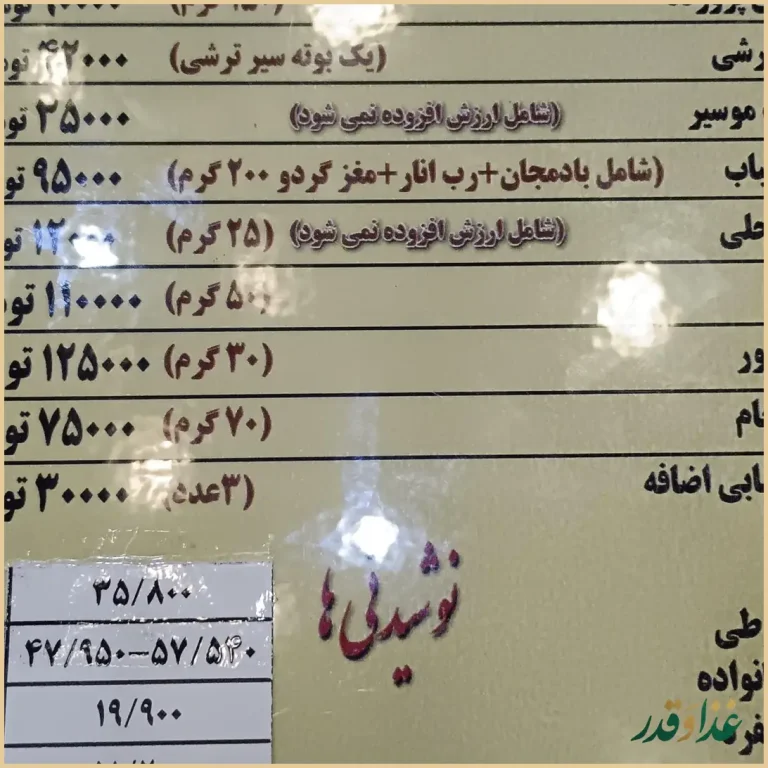 رشی (یک بوته سیر ترشی) ۴۲۰۰۰ تو
موسیر (شامل ارزش افزوده نمی شود) ۲۵۰۰۰ تو
باب (شامل بادمجان+رب انار+مغز گردو ۲۰۰ گرم) ۹۵۰۰۰ تو
حلی (شامل ارزش افزوده نمی شود) (۲۵ گرم) ۱۲۰۰۰ تو
(۵۰ گرم) ۱۱۰۰۰۰ تو
ور (۳۰ گرم) ۱۲۵۰۰۰ تو
ام (۷۰ گرم) ۷۵۰۰۰ تو
ابی اضافه (۳عدد) ۳۰۰۰۰ تو
نوشیدنی ها
۳۵/۸۰۰
طی ۴۷/۹۵۰-۵۷/۵۴۰
انواده ۱۹/۹۰۰
فره
غذا و قدر